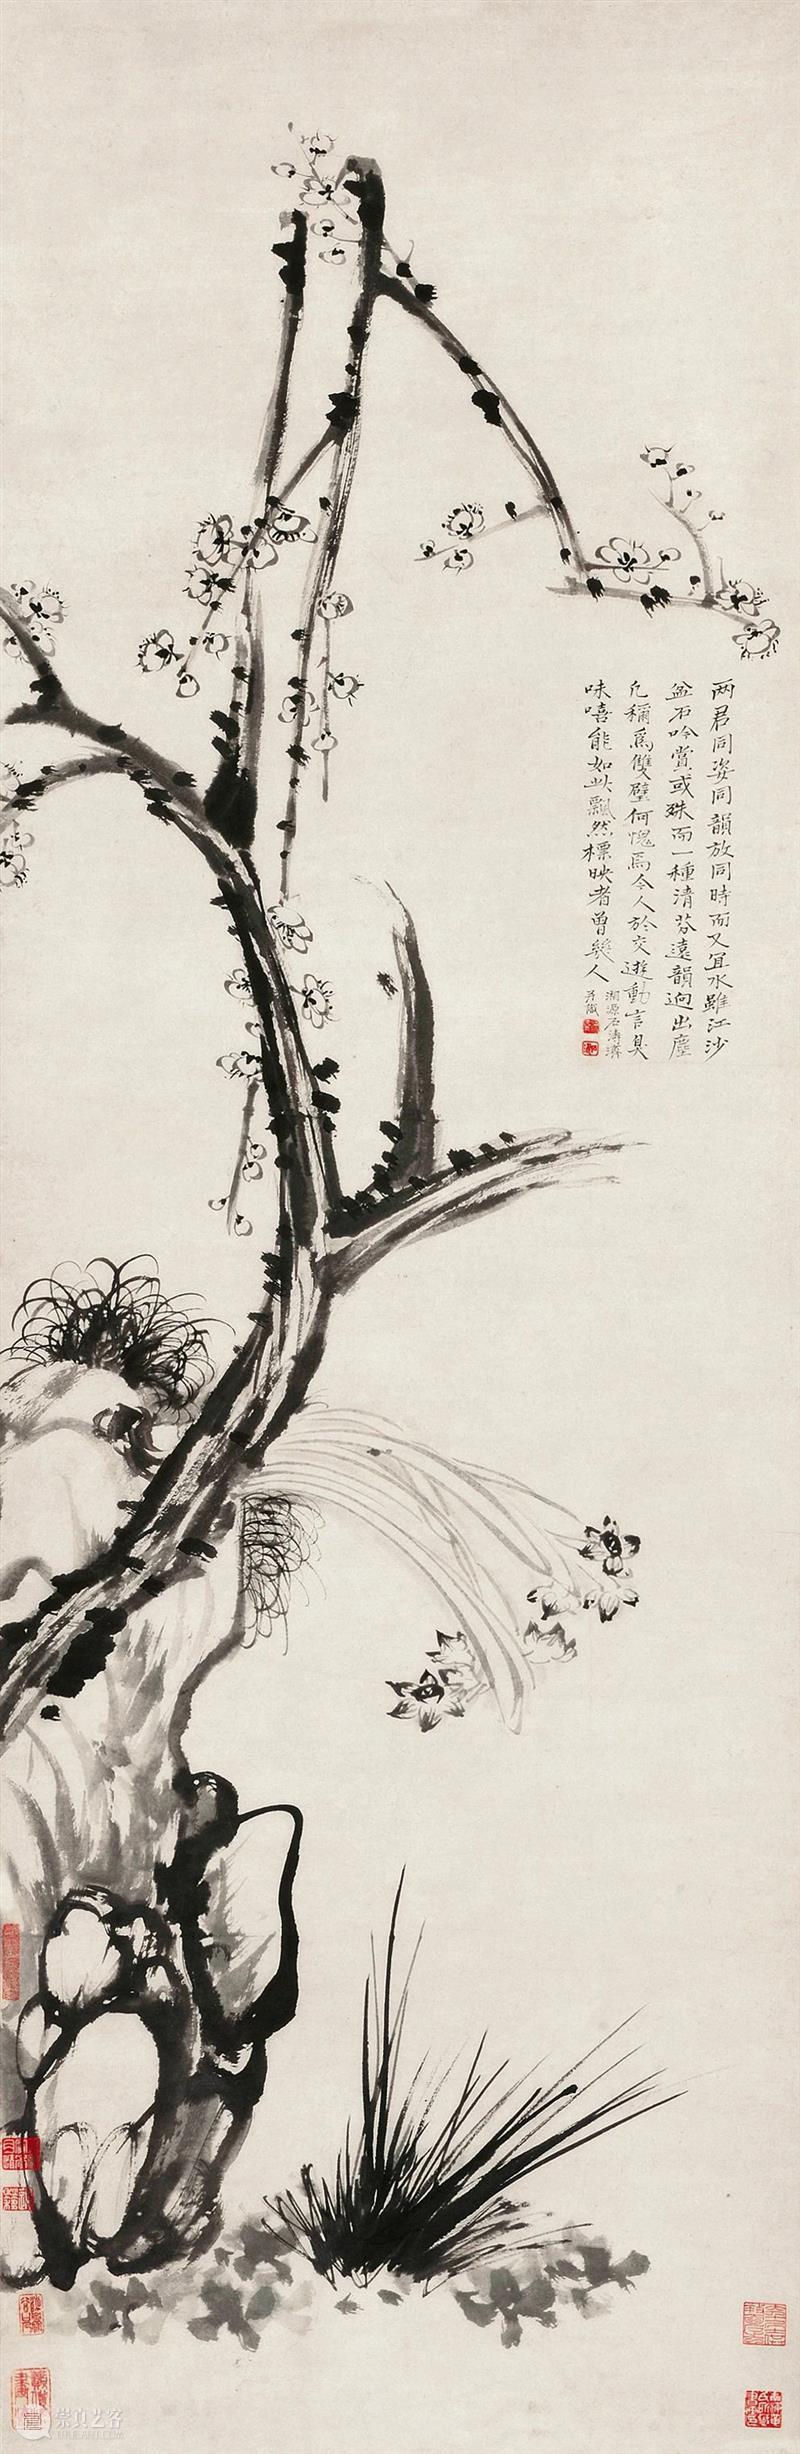 两君同姿同韻放同時而又宜水雖江沙
盆石吟賞或殊而一種清芬遠韻逈出塵
凡稱為雙璧何愧焉今人於交遊動言臭
味嘻能如此飄然標映者曾幾人
湘源石濤濟
并識
崇真艺客